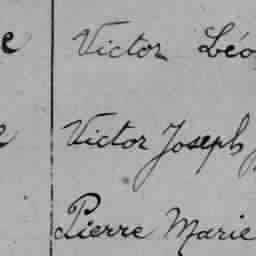 e Victor Léo
e Victor Joseph
Pierre Marie